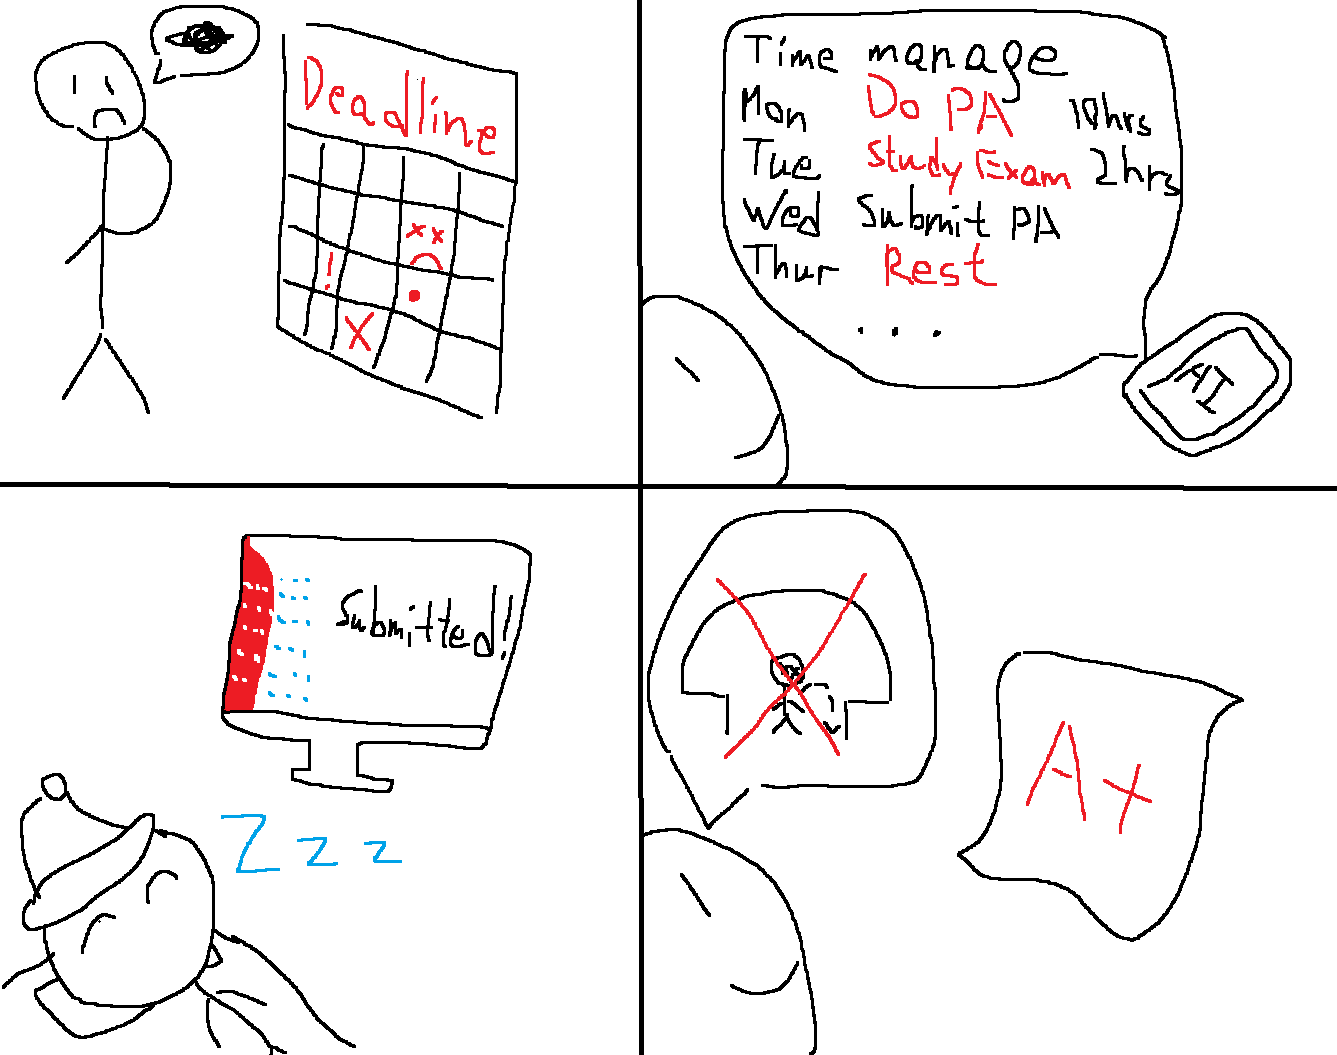 Deadline
!
X
Time manage
Mon Do PA 10hrs
Tue Study Exam 2hrs
Wed Submit PA
Thur Rest
...
AI
Submitted!
Zzz
A+